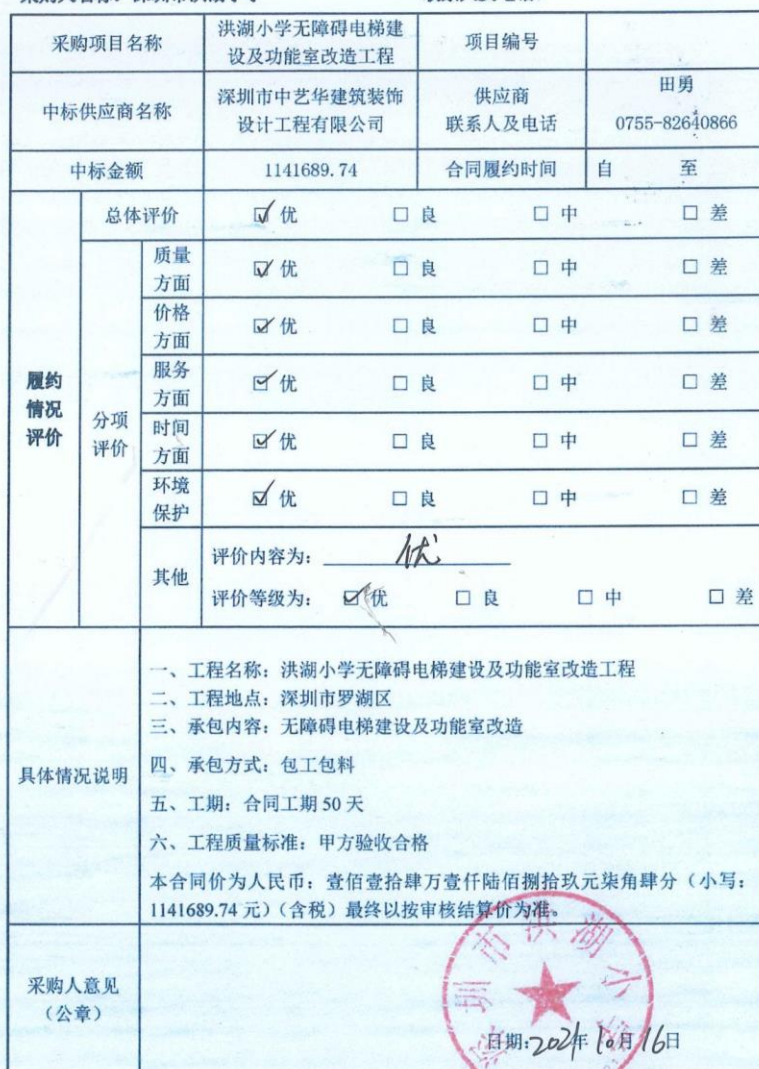 采购项目名称
洪湖小学无障碍电梯建
设及功能室改造工程
项目编号
中标供应商名称
深圳市中艺华建筑装饰
设计工程有限公司
供应商
联系人及电话
田勇
0755-82640866
中标金额
1141689.74
合同履约时间
自 至
履约
情况
评价
总体评价
☑ 优 □ 良 □ 中 □ 差
分项
评价
质量
方面
☑ 优 □ 良 □ 中 □ 差
价格
方面
☑ 优 □ 良 □ 中 □ 差
服务
方面
☑ 优 □ 良 □ 中 □ 差
时间
方面
☑ 优 □ 良 □ 中 □ 差
环境
保护
☑ 优 □ 良 □ 中 □ 差
其他
评价内容为：优
评价等级为：☑ 优 □ 良 □ 中 □ 差
具体情况说明
一、工程名称：洪湖小学无障碍电梯建设及功能室改造工程
二、工程地点：深圳市罗湖区
三、承包内容：无障碍电梯建设及功能室改造
四、承包方式：包工包料
五、工期：合同工期 50 天
六、工程质量标准：甲方验收合格
本合同价为人民币：壹佰壹拾肆万壹仟陆佰捌拾玖元柒角肆分（小写：
1141689.74 元）（含税）最终以按审核结算价为准。
采购人意见
（公章）
圳市洪湖小
日期：2021年10月16日